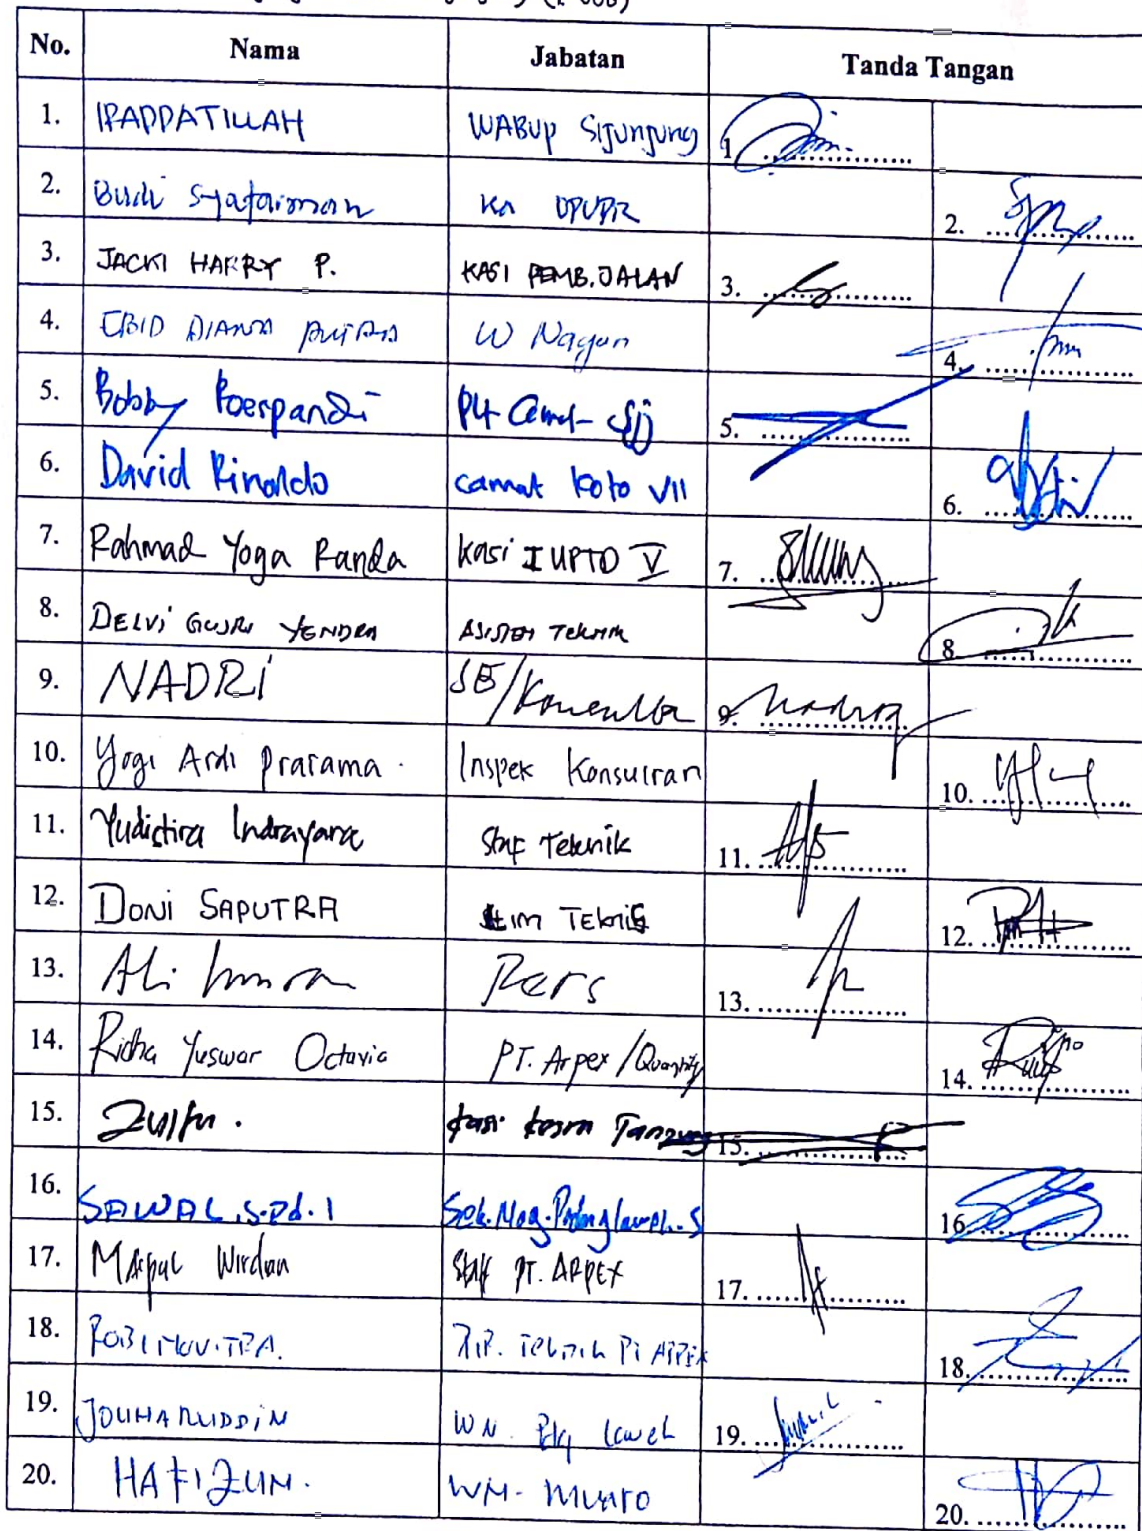 No. Nama Jabatan Tanda Tangan
1. IRADDATILLAH WABUP Sijunjung 1
2. Budi Syafarman Ka DPUPR 2.
3. JACKI HARRY P. KASI PEMB. JALAN 3.
4. W Nagari 4.
5. Bobby Roespandi Plt Camat Sjj 5.
6. David Rinaldo camat Koto VII 6.
7. Rahmad Yoga Randa Kasi I UPTD V 7.
8. DELVI GUSRI YENDRA ASISTEN TEKNIK 8.
9. NADRI SE/Konsultan 9.
10. Yogi Ardi Pratama. Inspek Konsultan 10.
11. Yudistira Indrayana Staf Teknik 11.
12. DONI SAPUTRA TIM TEKNIS 12.
13. Ali Imran Pers 13.
14. Ridha Yuswar Octavia PT. Arpex/Quantity 14.
15. kasi kesra 15.
16. SAWAL.S.Pd.I Sek.Nag. 16.
17. Wirdan Staf PT. ARPEX 17.
18. PT ARPEX 18.
19. JOUHARUDDIN WN. 19.
20. HAFIZUN. WN. Muaro 20.